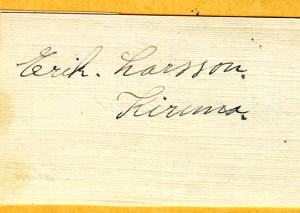 Erik. Larsson.
Kiruna.